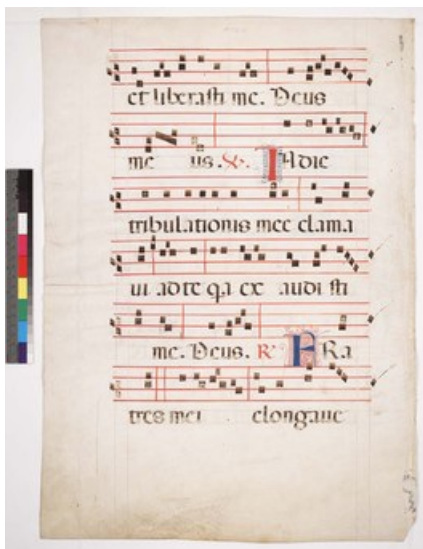 et liberasti me. Deus
me us. V. In die
tribulationis mee clama
vi ad te qa ex audi sti
me. Deus. R. FRa
tres mei elongave